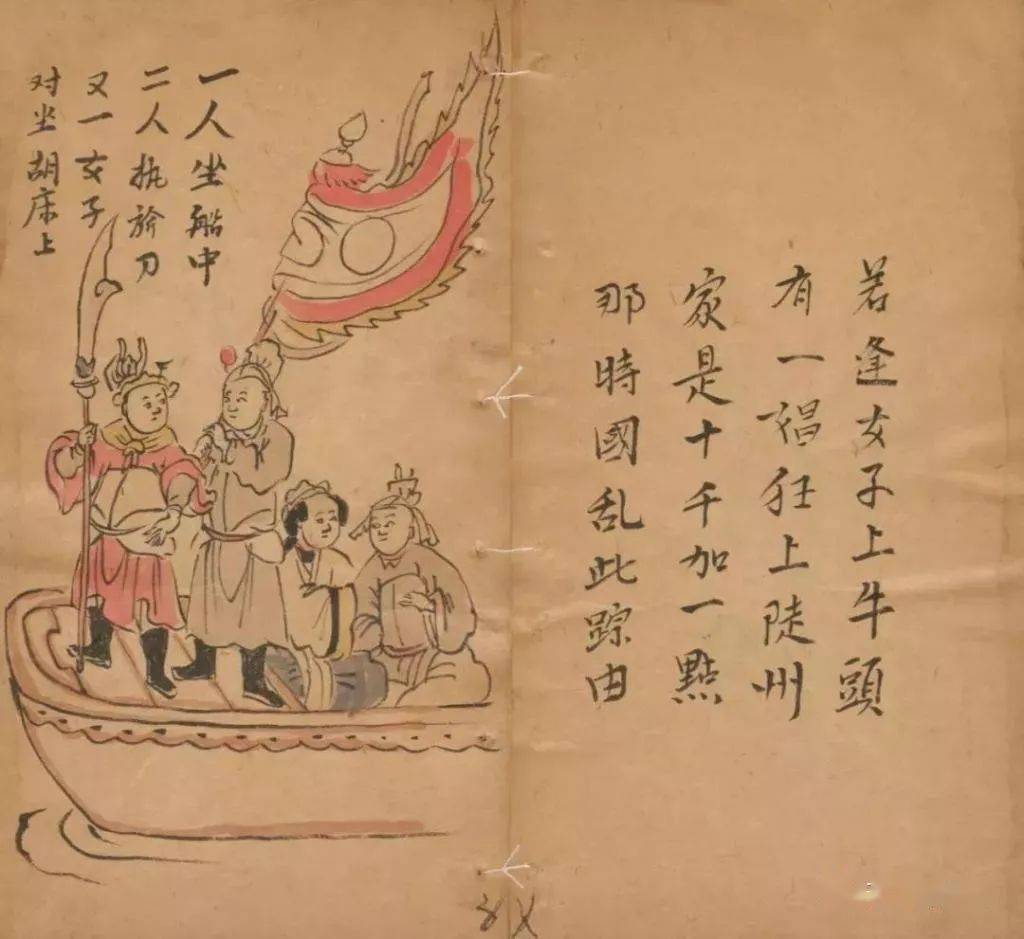 若逢女子上牛頭
有一猖狂上陡州
家是十千加一點
那時國乱此踪由
一人坐船中
二人执於刀
又一女子
对坐胡床上